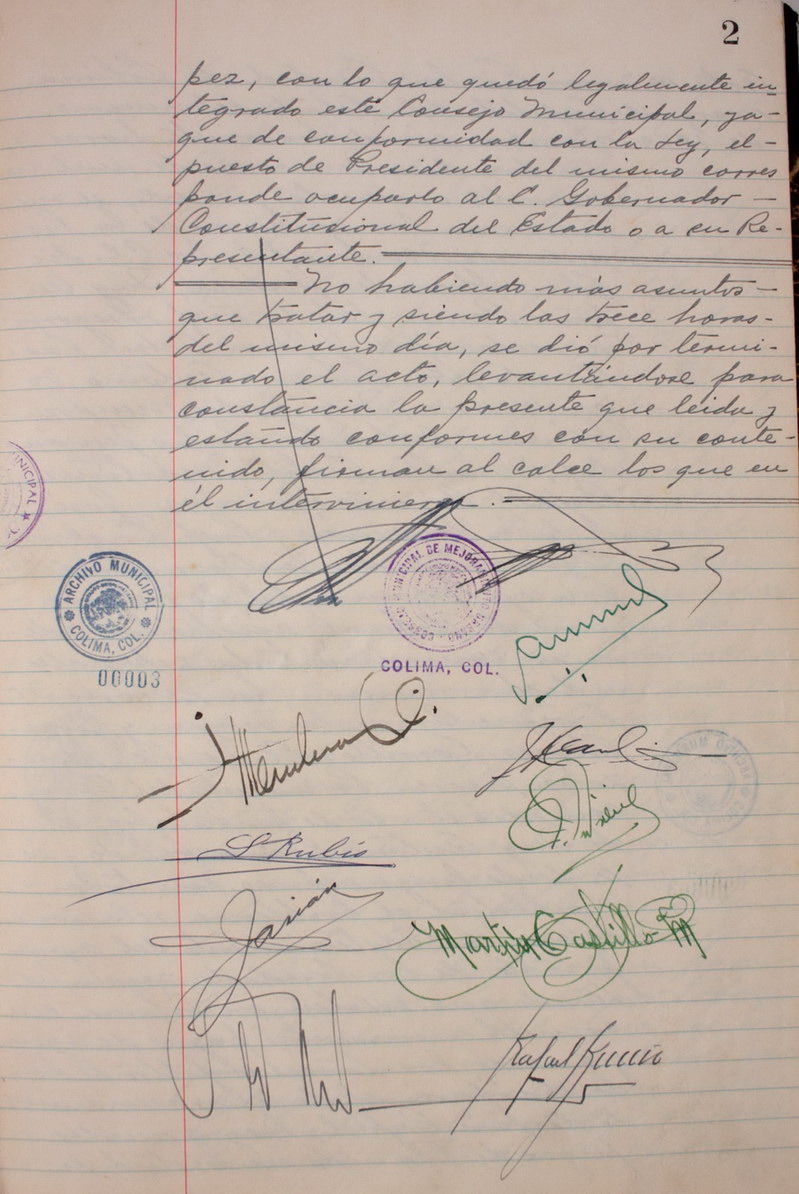 2
pez, con lo que quedó legalmente in
tegrado este Consejo Municipal, ya-
que de conformidad con la Ley, el-
puesto de Presidente del mismo corres
ponde ocuparlo al C. Gobernador-
Constitucional del Estado o a su Re-
presentante.
No habiendo más asuntos-
que tratar y siendo las trece horas-
del mismo día, se dió por termi-
nado el acto, levantándose para
constancia la presente que leida y
estando conformes con su conte-
nido, firman al calce los que en
él intervinieron.
NICIPAL
ARCHIVO MUNICIPAL
COLIMA, COL.
00003
COLIMA, COL.
S Rubio
Martín Castillo M
Rafael